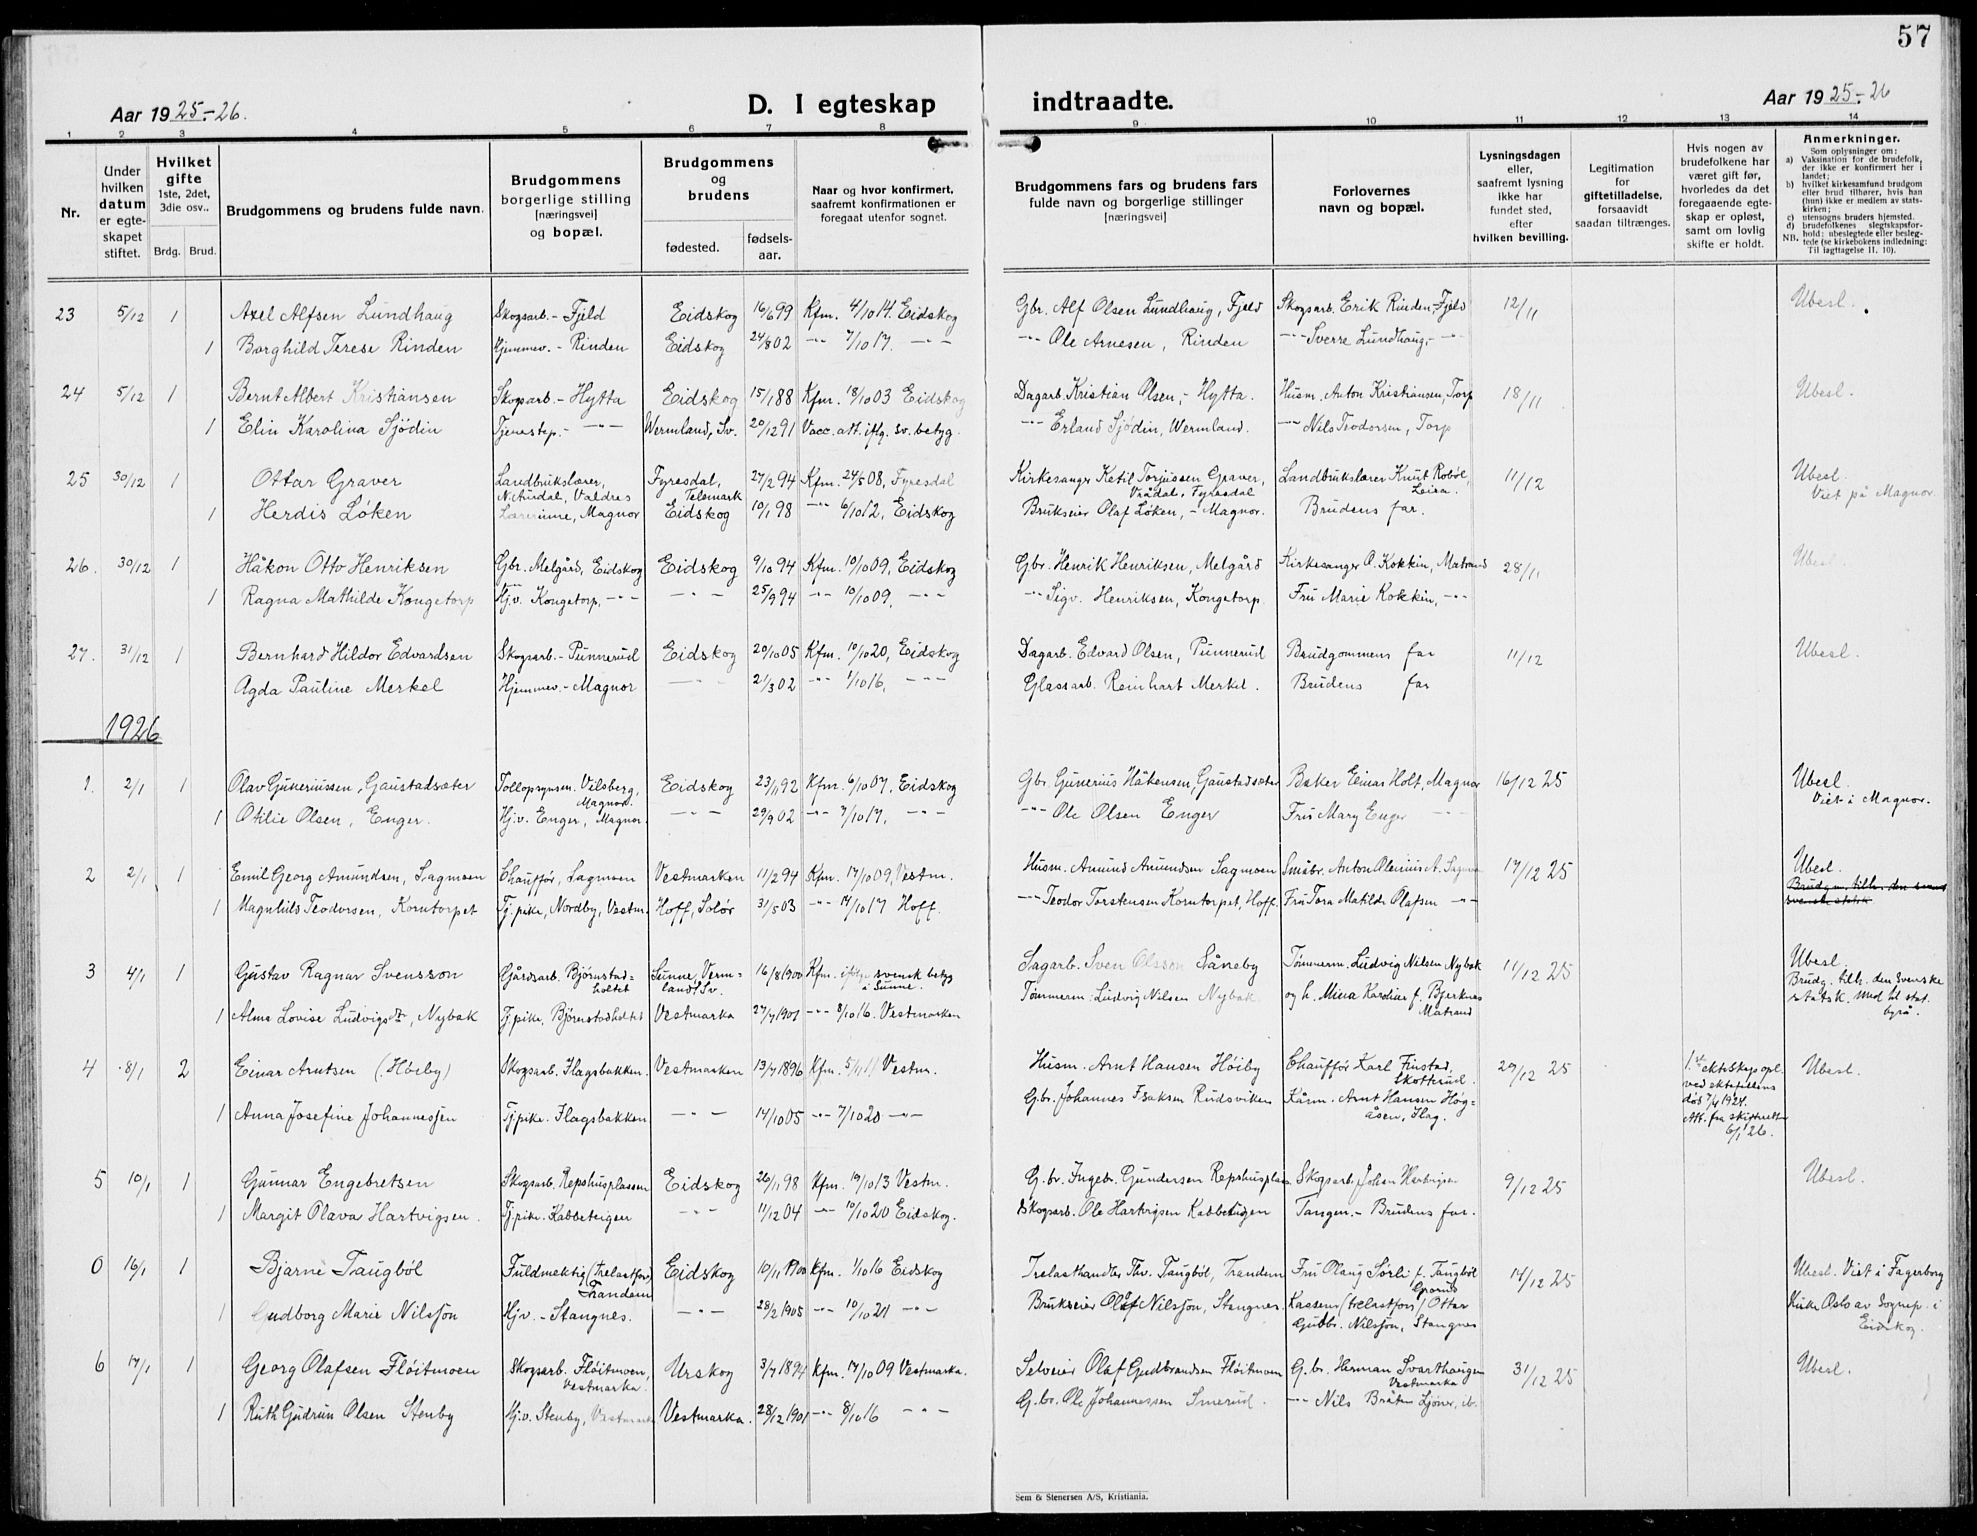 57
Aar 1925-26.
D. I egteskap
indtraadte.
Aar 1925-26
1 2 3 4 5 6 7 8 9 10 11 12 13 14
Nr.
Under hvilken datum er egteskapet stiftet.
Hvilket gifte 1ste, 2det, 3die osv..
Brdg. Brud.
Brudgommens og brudens fulde navn.
Brudgommens borgerlige stilling [næringsvei] og bopæl.
Brudgommens og brudens
fødested. fødselsaar.
Naar og hvor konfirmert, saafremt konfirmationen er foregaat utenfor sognet.
Brudgommens fars og brudens fars fulde navn og borgerlige stillinger [næringsvei]
Forlovernes navn og bopæl.
Lysningsdagen eller, saafremt lysning ikke har fundet sted, efter hvilken bevilling.
Legitimation for giftetilladelse, forsaavidt saadan tiltrænges.
Hvis nogen av brudefolkene har været gift før, hvorledes da det foregaaende egteskap er opløst, samt om lovlig skifte er holdt.
Anmerkninger.
Som oplysninger om:
a) Vaksination for de brudefolk, der ikke er konfirmert her i landet;
b) hvilket kirkesamfund brudgom eller brud tilhører, hvis han (hun) ikke er medlem av statskirken;
c) utensogns bruders hjemsted.
d) brudefolkenes slegtskapsforhold: ubeslegtede eller beslegtede (se kirkebokens indledning: Til iagttagelse II. 10).
NB.
23 5/12 1 Axel Alfsen Lundhaug Skogsarb. - Fjeld Eidskog 16/6 99 Kfm. 4/10 14. Eidskog Gbr. Alf Olsen Lundhaug, Fjeld Skogsarb. Erik Rinden, Fjeld 12/11 Ubesl.
1 Borghild Terese Rinden Hjemmev. - Rinden Eidskog 24/8 02 -"- 7/10 17. -"- -"- Ole Arnesen, Rinden -"- Sverre Lundhaug, -"-
24 5/12 1 Bernt Albert Kristiansen Skogsarb. - Hytta Eidskog 15/1 88 Kfm. 18/10 03 Eidskog Dagarb. Kristian Olsen, - Hytta. Husm. Anton Kristiansen, Torp 18/11 Ubesl.
1 Elin Karolina Sjödin Tjenestep. - -"- Wermland, Sv. 20/12 91 Vacc. att. iflg. sv. betyg. -"- Erland Sjödin, Wermland. -"- Nils Teodorsen, Torp
25 30/12 1 Ottar Graver Landbrukslærer, N. Aurdal, Valdres Fyresdal, Telemark 27/2 94 Kfm. 24/5 08, Fyresdal Kirkesanger Ketil Torjussen Graver, Vrådal, Fyresdal Landbrukslærer Knut Robøl, Leira. 11/12 Ubesl. Viet på Magnor
1 Herdis Løken Lærerinne, Magnor Eidskog 10/1 98 -"- 6/10 12, Eidskog Brukseier Olaf Løken, - Magnor. Brudens far.
26. 30/12 1 Håkon Otto Henriksen Gbr. Melgård, Eidskog Eidskog 9/10 94 Kfm. 10/10 09, Eidskog Gbr. Henrik Henriksen, Melgård Kirkesanger O. Kokkin, Matrand 28/11 Ubesl.
1 Ragna Mathilde Kongetorp Hj.v. Kongetorp, -"- -"- 25/9 94 -"- 10/10 09, -"- -"- Sigv. Henriksen, Kongetorp. Fru Marie Kokkin, -"-
27. 31/12 1 Bernhard Hildor Edvardsen Skogsarb. - Punnerud Eidskog 20/10 05 Kfm. 10/10 20, Eidskog Dagarb. Edvard Olsen, Punnerud Brudgommens far 11/12 Ubesl.
Agda Pauline Merkel Hjemmev. - Magnor -"- 21/3 02 -"- 1/10 16, -"- Glassarb. Reinhart Merkel. Brudens far
1926
1. 2/1 1 Olav Guneriussen, Gaustadsæter Tollopsynsm. Vilsberg, Magnor. Eidskog 23/1 92 Kfm. 6/10 07, Eidskog Gbr. Gunerius Håkensen, Gaustadsæter Baker Einar Holt, Magnor 16/12 25 Ubesl. Viet i Magnor.
1 Otilie Olsen, Enger. Hj.v. Enger, Magnor. -"- 29/9 02 -"- 7/10 17, -"- -"- Ole Olsen Enger Fru Mary Enger -"-
2 2/1 1 Emil Georg Amundsen, Sagmoen Chauffør, Sagmoen Vestmarken 11/2 94 Kfm. 17/10 09, Vestm. Husm. Amund Amundsen Sagmoen Småbr. Anton Olenius A. 17/12 25 Ubesl. Brudgm. tilh. den svenske statsk.
1 Magnhild Teodorsen, Korntorpet Tj.pike, Nordby, Vestm. Hoff, Solør 31/5 03 -"- 14/10 17 Hoff. -"- Teodor Torstensen Korntorpet, Hoff. Fru Tora Matilde Olafsen -"-
3 4/1 1 Gustav Ragnar Svensson Gårdsarb. Bjørnstadholtet Sunne, Vermland, Sv. 16/8 1900 Kfm. iflg. svensk betyg i Sunne. Sagarb. Sven Olsson Såneby Tømmerm. Ludvig Nilsen Nybak 11/12 25 Ubesl. Brudg. tilh. den svenske statsk. Med. til stat. byrå.
1 Alma Lovise Ludvigsdr, Nybak Tj.pike, Bjørnstadholtet Vestmarka 27/7 1901 -"- 8/10 16. Vestmarken Tømmerm. Ludvig Nilsen Nybak og h. Mina Karoline f. Bjerknes Matrand
4 8/1 2 Einar Arntsen (Høiby) Skogsarb. Flagsbakken. Vestmarken 13/7 1896 Kfm. 5/11 11 Vestm. Husm. Arnt Hansen Høiby Chauffør Karl Finstad, Skotterud. 29/12 25 1ste ekteskap opl. ved ektefellens død 7/4 1924. Att. fra skifteretten 6/1 26. Ubesl.
1 Anna Josefine Johannessen Tj.pike. Flagsbakken -"- 14/10 05 -"- 7/10 20 -"- G.br. Johannes Isaksen Rudsviken Kårm. Arnt Hansen Høgåsen, Flag.
5 10/1 1 Gunnar Engebretsen Skogsarb. Repshusplassen Eidskog 26/11 98 Kfm. 19/10 13 Vestm. G.br. Ingebr. Gundersen Repshusplass Skogsarb. Johan 9/12 25 Ubesl.
1 Margit Olava Hartvigsen. Tj.pike. Kabbeteigen -"- 11/12 04 -"- 10/10 20 Eidskog. Skogsarb. Ole Hartvigsen Kabbeteigen Tangen. - Brudens far.
0 16/1 1 Bjarne Taugbøl Fuldmektig (Trelastforr.) Trandem Eidskog 10/11 1900 Kfm. 1/10 16 Eidskog Trelasthandler Thv. Taugbøl, Trandem Fru Olaug Sørli f. Taugbøl 14/12 25 Ubesl. Viet i Fagerborg
1 Gudborg Marie Nilssøn Hj.v. - Stangnes. -"- 28/2 1905 -"- 10/10 21 -"- Brukseier Olaf Nilssøn, Stangnes. Kassem. (trelastforr.) Ottar Gudbr. Nilssøn, Stangnes Kirke Oslo av Sognep. i Eidskog.
6 17/1 1 Georg Olafsen Fløitmoen Skogsarb. Fløitmoen, Vestmarka. Urskog 3/7 1894 Kfm. 17/10 09 Vestmarka. Selveier Olaf Gudbrandsen Fløitmoen G.br. Herman Svarthaugen Vestmarka 31/12 25 Ubesl.
1 Ruth Gudrun Olsen Stenby Hj.v. Stenby, Vestmarka Vestmarka. 28/12 1901 -"- 8/10 16 -"- G.br. Ole Johannessen Smerud. -"- Nils Bråten Ljøner, ib.
Sem & Stenersen A/S, Kristiania.